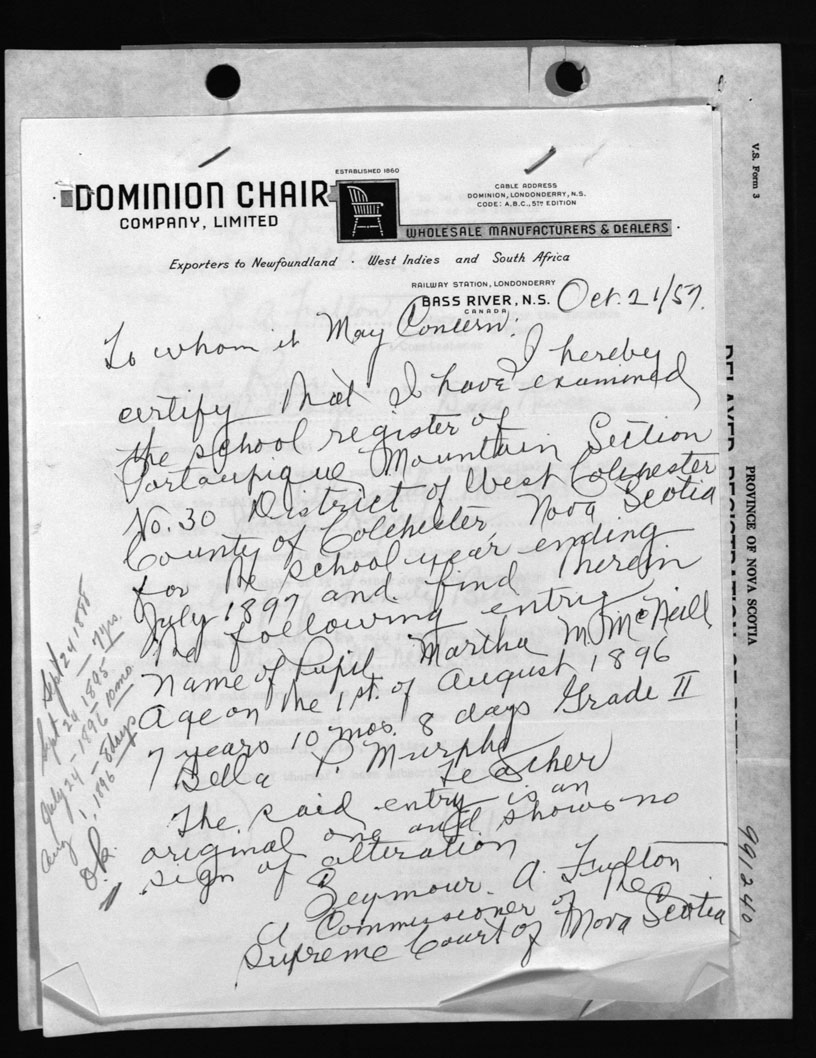 ESTABLISHED 1860
DOMINION CHAIR
COMPANY, LIMITED
CABLE ADDRESS
DOMINION, LONDONDERRY, N.S.
CODE: A,B,C., 5TH EDITION
WHOLESALE MANUFACTURERS & DEALERS
Exporters to Newfoundland · West Indies and South Africa
RAILWAY STATION, LONDONDERRY
BASS RIVER, N.S.
CANADA
Oct. 21/57.
To whom it May Concern.
I hereby
certify that I have examined
the school register of
Portaupique Mountain Section
No. 30 District of West Colchester
County of Colchester, Nova Scotia
for the school year ending
July 1897 and find therein
the following entry
Name of Pupil Martha M. McNeill
Age on the 1st. of August 1896
7 years 10 mos. 8 days Grade II
Bella Murphy
Teacher
The said entry is an
original one and shows no
sign of alteration
Seymour. A. Fulton
A Commissioner of the
Supreme Court of Nova Scotia
Sept 24 1888
Sept 24, 1895 — 7 yrs.
July 24 - 1896 10 mo.
Aug 1, 1896 - 8 days
O.K.
V.S. Form 3
PROVINCE OF NOVA SCOTIA
991240